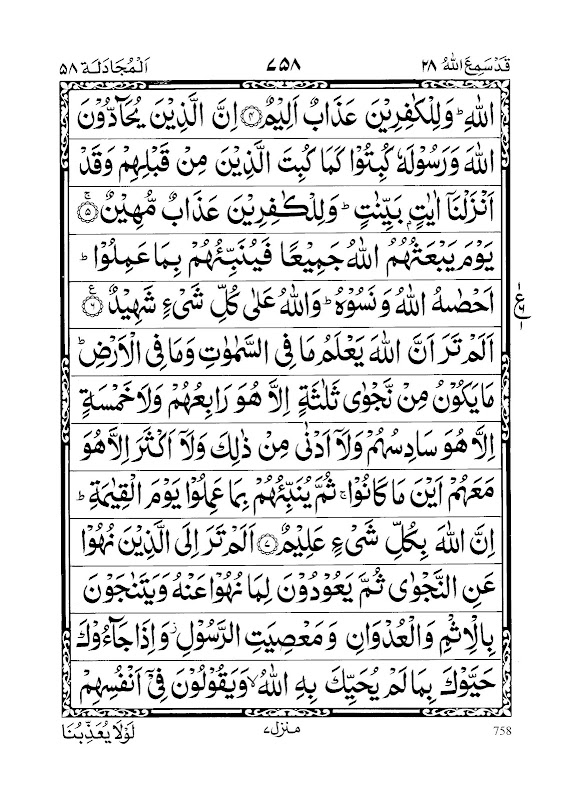 قَدْ سَمِعَ اللّٰهُ ٢٨
٧٥٨
اَلْمُجَادَلَة ٥٨
اللّٰهِ ؕ وَلِلْكٰفِرِيْنَ عَذَابٌ اَلِيْمٌ ۝٤ اِنَّ الَّذِيْنَ يُحَآدُّوْنَ
اللّٰهَ وَرَسُوْلَهٗ كُبِتُوْا كَمَا كُبِتَ الَّذِيْنَ مِنْ قَبْلِهِمْ وَقَدْ
اَنْزَلْنَاۤ اٰيٰتٍۭ بَيِّنٰتٍ ؕ وَلِلْكٰفِرِيْنَ عَذَابٌ مُّهِيْنٌ ۝٥ۚ
يَوْمَ يَبْعَثُهُمُ اللّٰهُ جَمِيْعًا فَيُنَبِّئُهُمْ بِمَا عَمِلُوْا ؕ
اَحْصٰىهُ اللّٰهُ وَنَسُوْهُ ؕ وَاللّٰهُ عَلٰى كُلِّ شَيْءٍ شَهِيْدٌ ۝٦ۧ
اَلَمْ تَرَ اَنَّ اللّٰهَ يَعْلَمُ مَا فِى السَّمٰوٰتِ وَمَا فِى الْاَرْضِ ؕ
مَا يَكُوْنُ مِنْ نَّجْوٰى ثَلٰثَةٍ اِلَّا هُوَ رَابِعُهُمْ وَلَا خَمْسَةٍ
اِلَّا هُوَ سَادِسُهُمْ وَلَاۤ اَدْنٰى مِنْ ذٰلِكَ وَلَاۤ اَكْثَرَ اِلَّا هُوَ
مَعَهُمْ اَيْنَ مَا كَانُوْا ۚ ثُمَّ يُنَبِّئُهُمْ بِمَا عَمِلُوْا يَوْمَ الْقِيٰمَةِ ؕ
اِنَّ اللّٰهَ بِكُلِّ شَيْءٍ عَلِيْمٌ ۝٧ اَلَمْ تَرَ اِلَى الَّذِيْنَ نُهُوْا
عَنِ النَّجْوٰى ثُمَّ يَعُوْدُوْنَ لِمَا نُهُوْا عَنْهُ وَيَتَنٰجَوْنَ
بِالْاِثْمِ وَالْعُدْوَانِ وَمَعْصِيَتِ الرَّسُوْلِ ۡ وَاِذَا جَآءُوْكَ
حَيَّوْكَ بِمَا لَمْ يُحَيِّكَ بِهِ اللّٰهُ ۙ وَيَقُوْلُوْنَ فِىْۤ اَنْفُسِهِمْ
لَوْلَا يُعَذِّبُنَا
منزل ٧
758